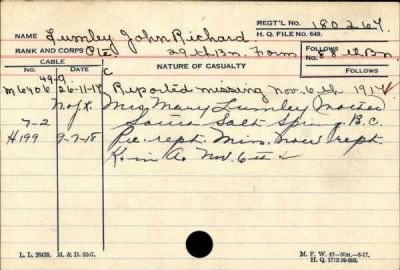 REGT'L NO. 180267
NAME Lumley, John Richard
H. Q. FILE NO. 649.
RANK AND CORPS Pte. 29th Bn. Form
FOLLOWS 88th Bn.
CABLE
NO. DATE
NATURE OF CASUALTY
FOLLOWS
49-9. C
M6406 26-11-17 Reported missing Nov. 6th 1917
N of K Mrs Mary Lumley (
7-2 Salt Spring B.C.
H199 9-7-18 Pre. rept. Miss. now rept.
K. in A. Nov. 6th
L. L. 26436. M. & D. 8256.
M. F. W. 42—50M.—6-17.
H. Q. 1772-39-893.